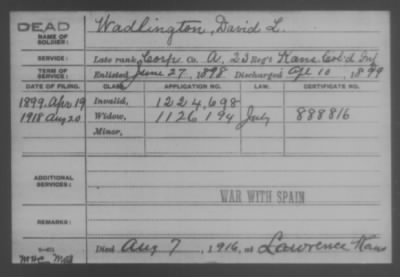 DEAD
NAME OF SOLDIER: Wadlington, David L.
SERVICE: Late rank, Corp. Co. A, 23 Reg't Kans Col'd Inf
TERM OF SERVICE: Enlisted June 27, 1898 Discharged Apl 10, 1899
DATE OF FILING. CLASS. APPLICATION NO. LAW. CERTIFICATE NO.
1899, Apr 19 Invalid, 1224,698
1918 Aug 20 Widow, 1126194 July 888816
Minor,
ADDITIONAL SERVICES:
WAR WITH SPAIN
REMARKS:
Died Aug 7, 1916, at Lawrence Kans